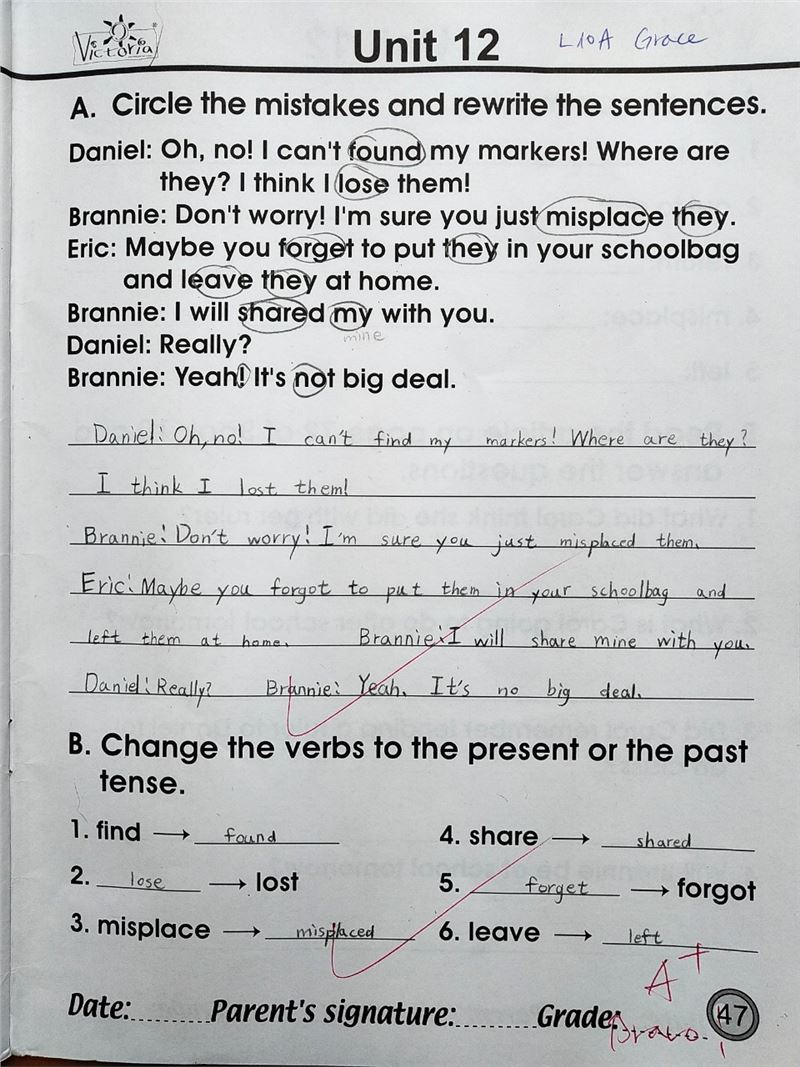 Victoria
Unit 12
L10A Grace
A. Circle the mistakes and rewrite the sentences.
Daniel: Oh, no! I can't found my markers! Where are
they? I think I lose them!
Brannie: Don't worry! I'm sure you just misplace they.
Eric: Maybe you forget to put they in your schoolbag
and leave they at home.
Brannie: I will shared my with you.
mine
Daniel: Really?
Brannie: Yeah! It's not big deal.
Daniel: Oh, no! I can't find my markers! Where are they?
I think I lost them!
Brannie: Don't worry! I'm sure you just misplaced them.
Eric: Maybe you forgot to put them in your schoolbag and
left them at home. Brannie: I will share mine with you.
Daniel: Really? Brannie: Yeah. It's no big deal.
B. Change the verbs to the present or the past
tense.
1. find → found
2. lose → lost
3. misplace → misplaced
4. share → shared
5. forget → forgot
6. leave → left
A+
Date: Parent's signature: Grade:
Bravo!
47